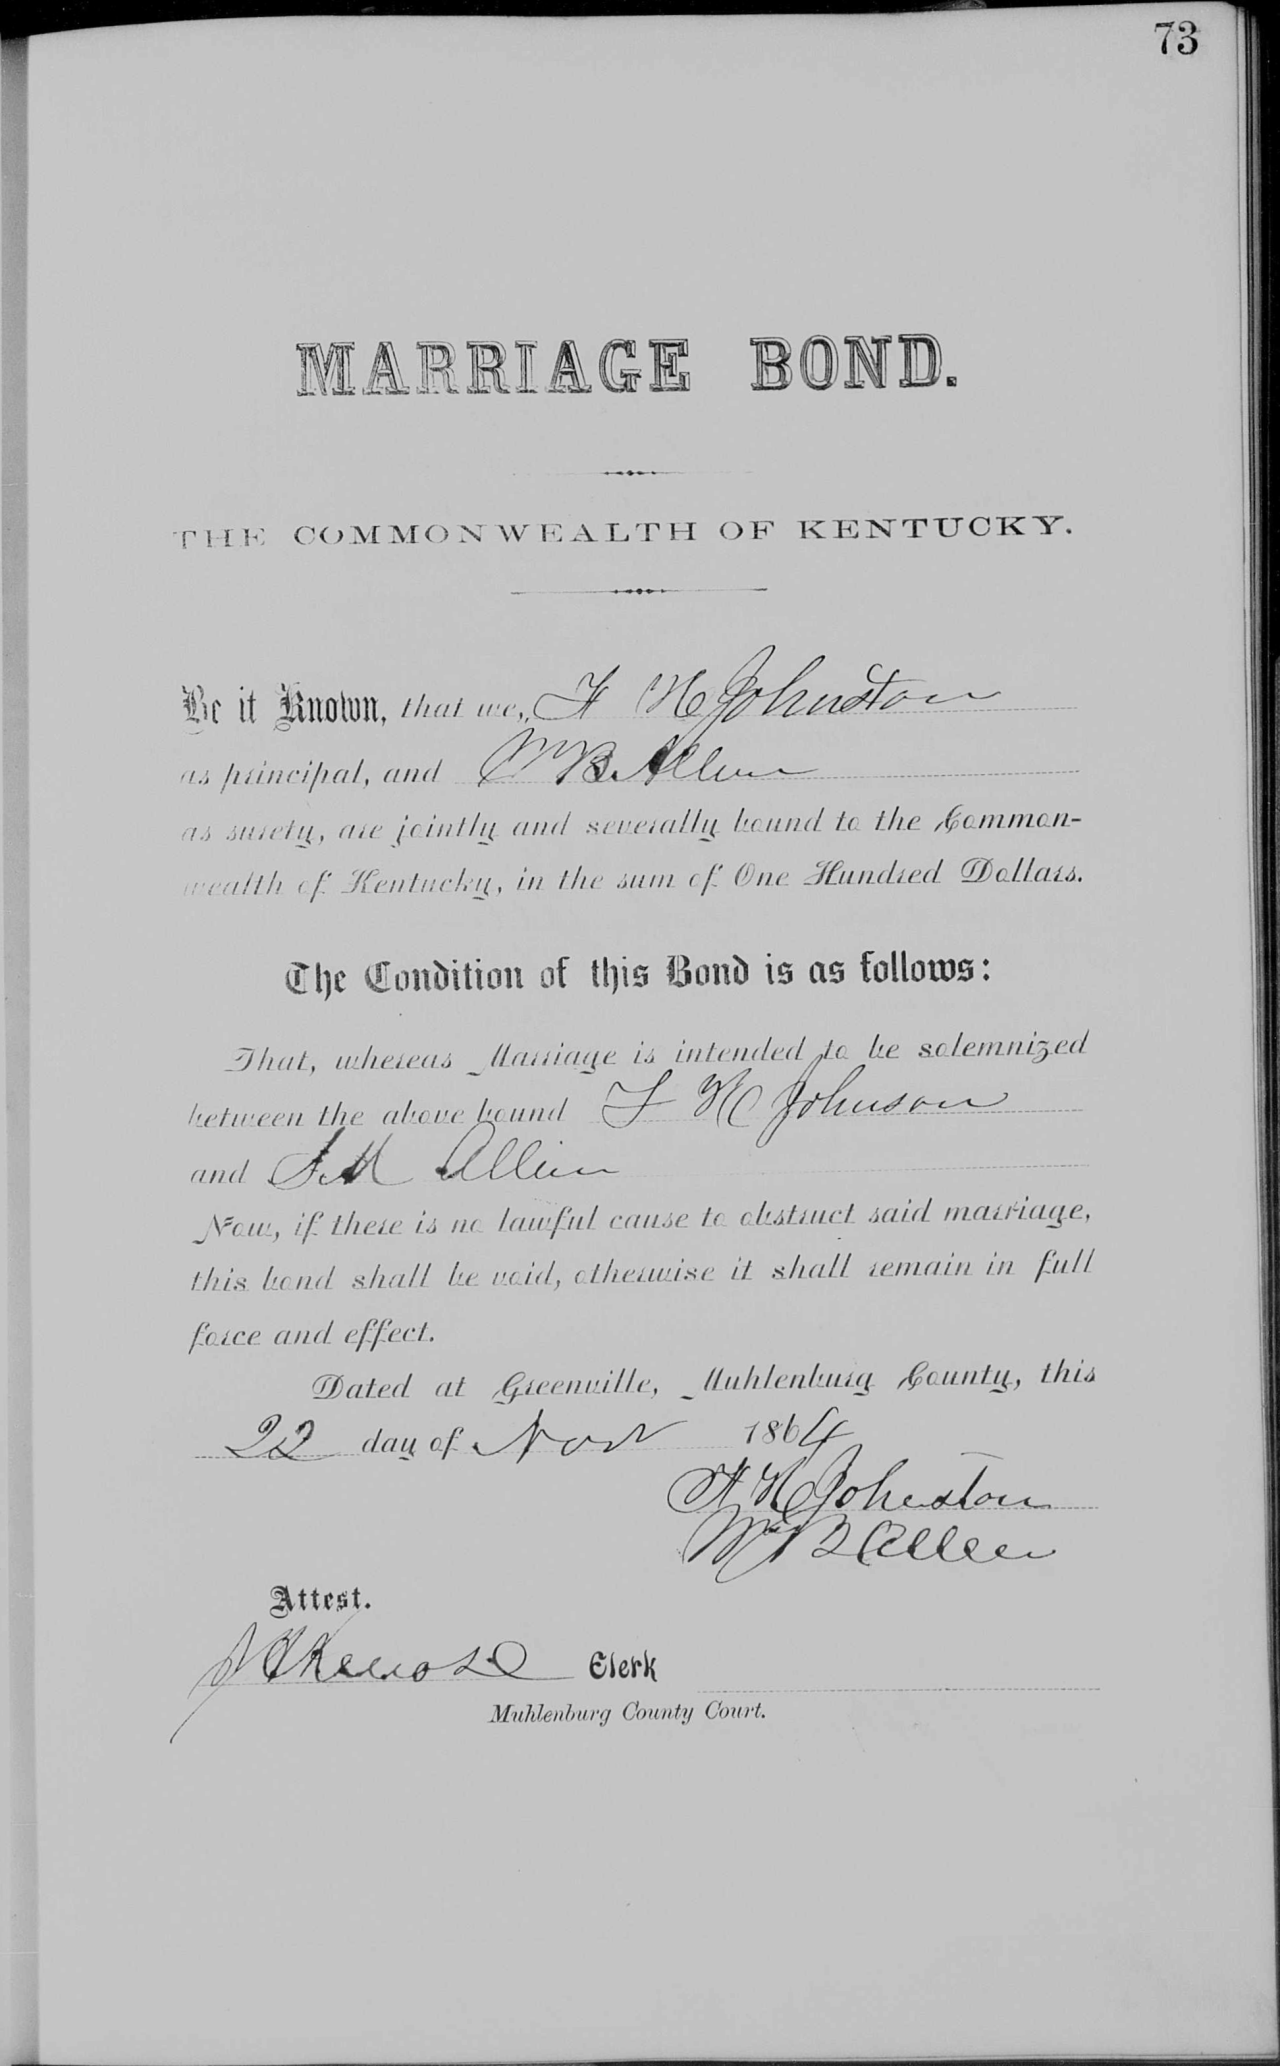 73
MARRIAGE BOND.
THE COMMONWEALTH OF KENTUCKY.
Be it Known, that we, F H Johnston
as principal, and Wm B. Allen
as surety, are jointly and severally bound to the Common-
wealth of Kentucky, in the sum of One Hundred Dollars.
The Condition of this Bond is as follows:
That, whereas Marriage is intended to be solemnized
between the above bound F H Johnson
and S. M Allen
Now, if there is no lawful cause to obstruct said marriage,
this bond shall be void, otherwise it shall remain in full
force and effect.
Dated at Greenville, Muhlenburg County, this
22 day of Nov 1864
F H Johnston
Wm B Allen
Attest.
Clerk
Muhlenburg County Court.